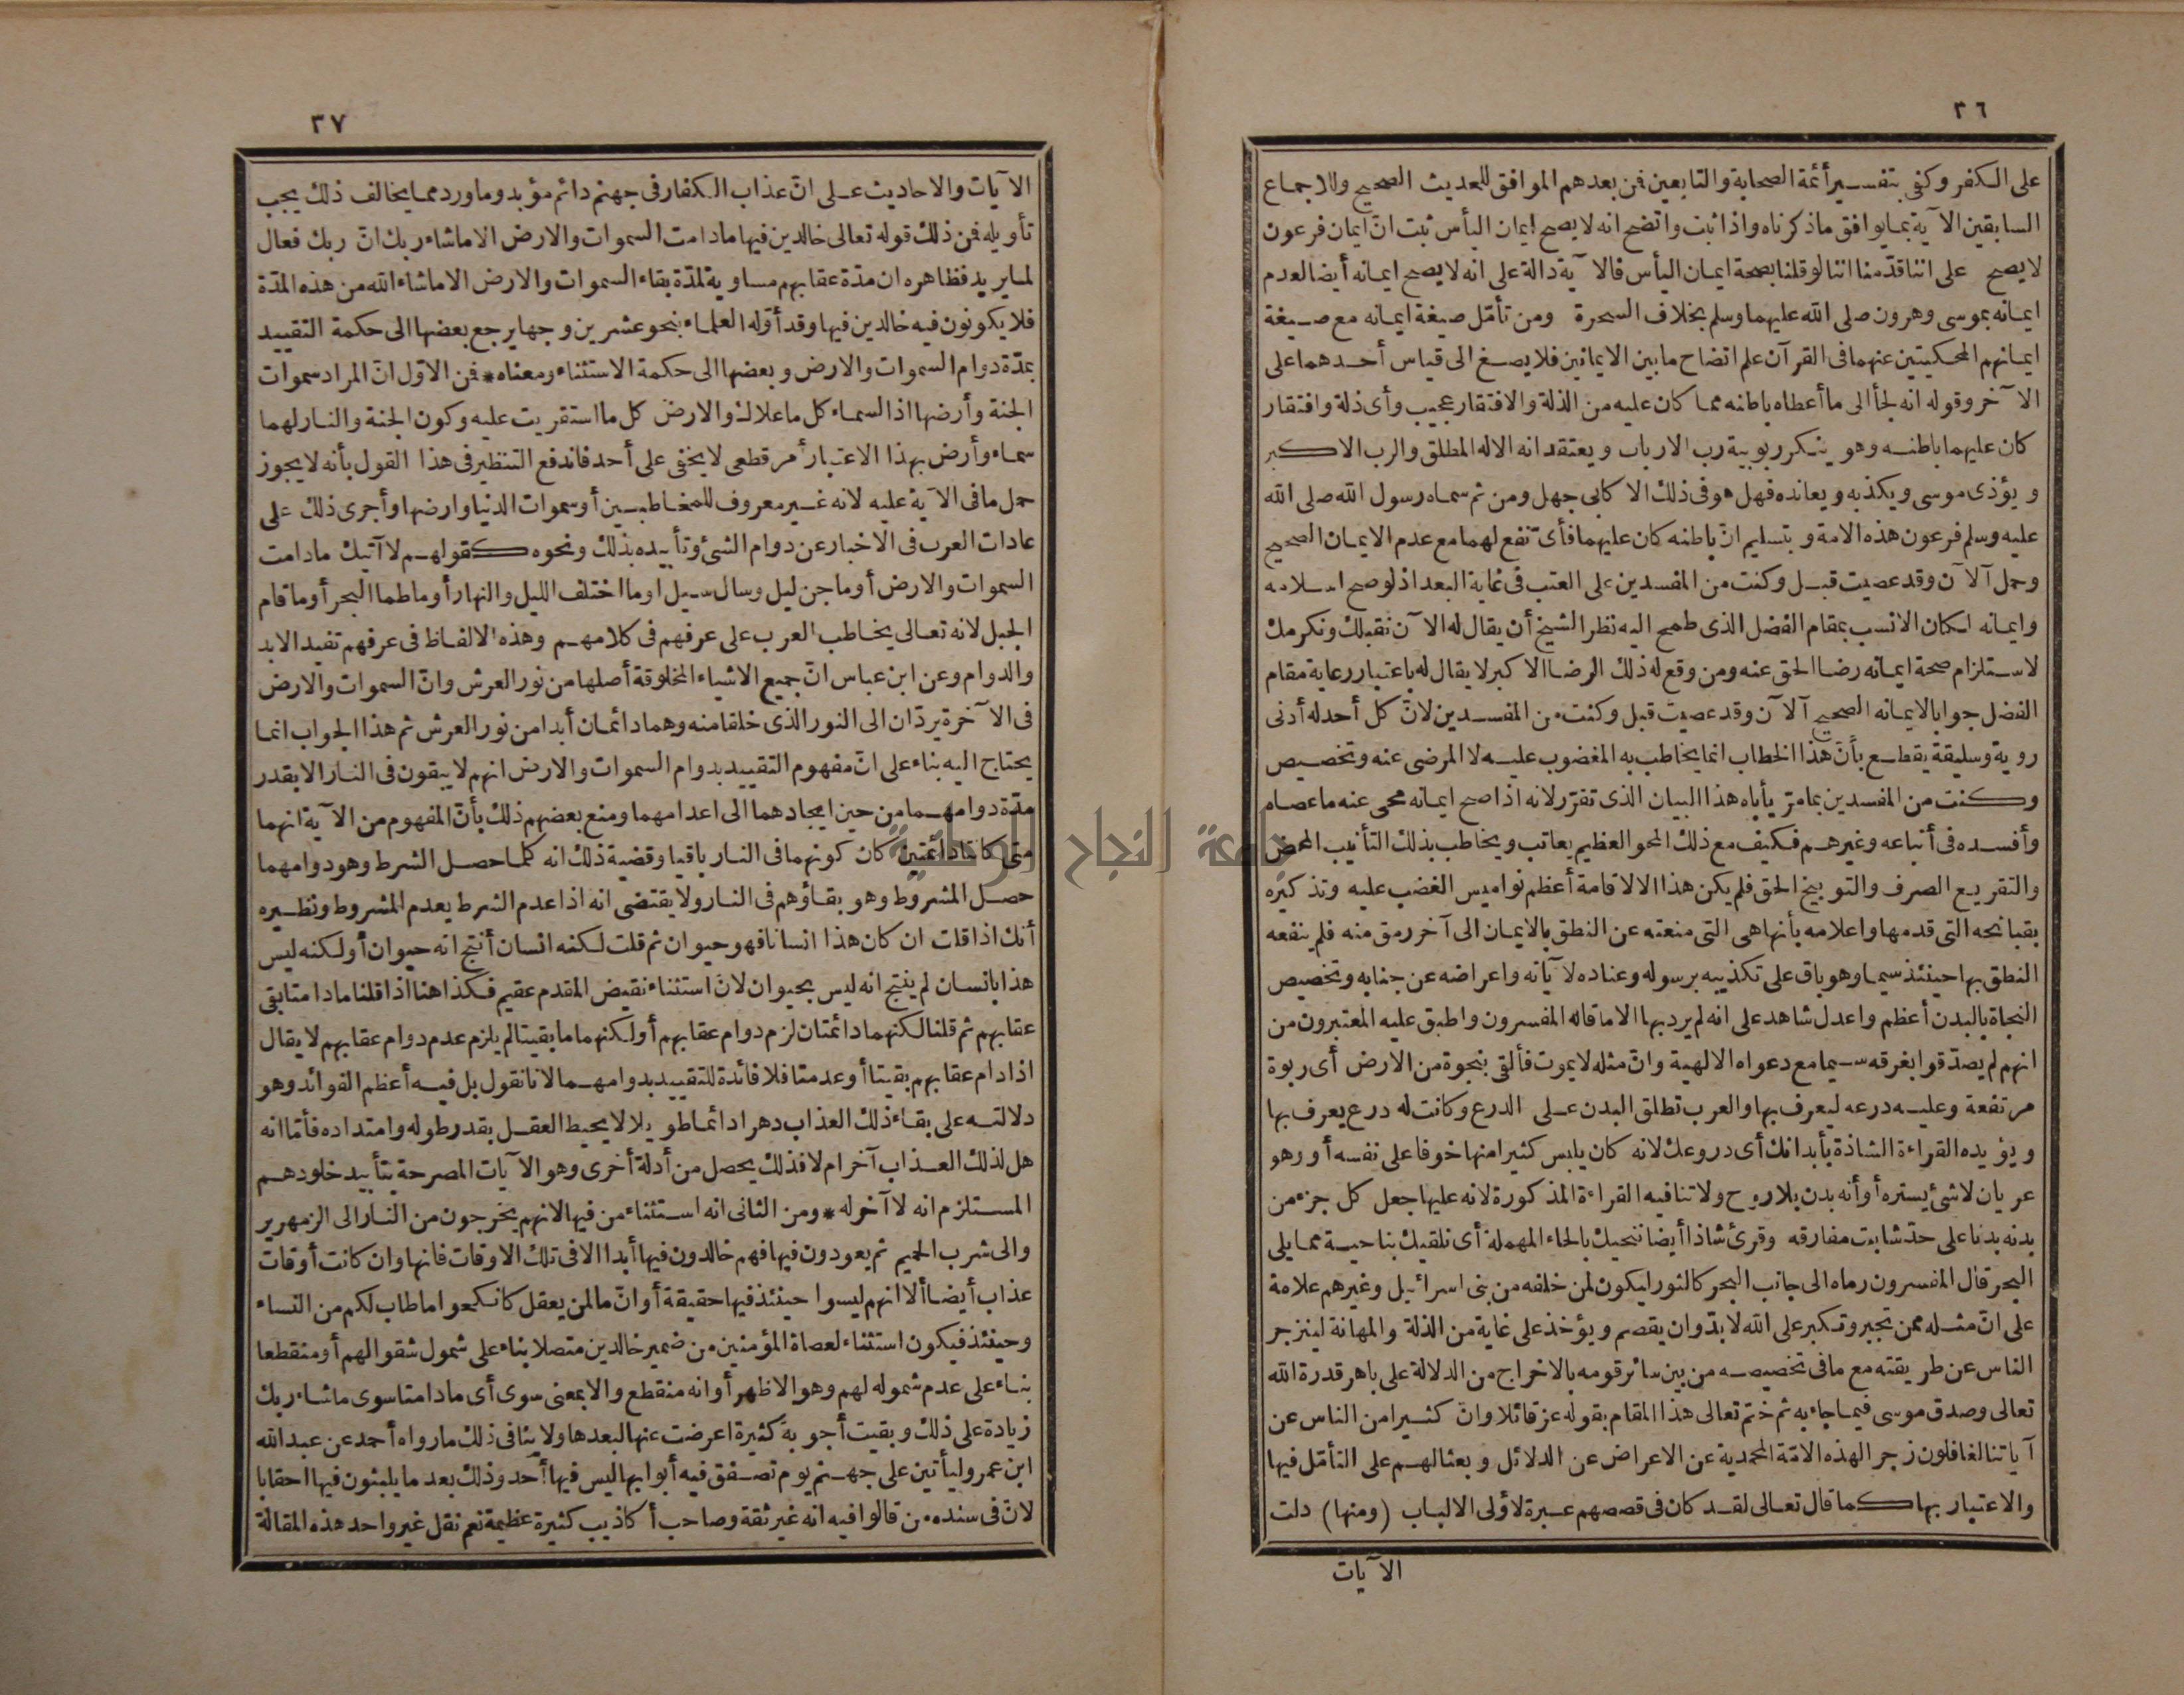 ٣٦
على الكفر وكفى بتفسير أئمة الصحابة والتابعين فمن بعدهم الموافق للحديث الصحيح وللاجماع
السابقين الآية بما يوافق ماذكرناه واذا ثبت واتضح انه لا يصح ايمان اليأس ثبت انّ ايمان فرعون
لا يصح على اننا قدّمنا اننا لو قلنا بصحة ايمان اليأس فالآية دالة على انه لا يصح ايمانه أيضا لعدم
ايمانه بموسى وهرون صلى الله عليهما وسلم بخلاف السحرة ومن تأمّل صيغة ايمانه مع صيغة
ايمانهم المحكيتين عنهما فى القرآن علم اتضاح ما بين الايمانين فلا يصغ الى قياس أحدهما على
الآخر وقوله انه لجأ الى ما أعطاه باطنه مما كان عليه من الذلة والافتقار عجيب وأى ذلة وافتقار
كان عليهما باطنه وهو ينكر ربوبية رب الارباب ويعتقد انه الاله المطلق والرب الاكبر
ويؤذى موسى ويكذبه ويعانده فهل هو فى ذلك الا كابى جهل ومن ثم سماه رسول الله صلى الله
عليه وسلم فرعون هذه الامة وبتسليم انّ باطنه كان عليهما فأىّ نفع لهما مع عدم الايمان الصحيح
وحمل آلآن وقد عصيت قبل وكنت من المفسدين على العتب فى غاية البعد اذ لو صح اسلامه
وايمانه لكان الانسب بمقام الفضل الذى طمح اليه نظر الشيخ أن يقال له الآن نقبلك ونكرمك
لاستلزام صحة ايمانه رضا الحق عنه ومن وقع له ذلك الرضا الاكبر لا يقال له باعتبار رعاية مقام
الفضل جوابا لايمانه الصحيح آلآن وقد عصيت قبل وكنت من المفسدين لانّ كل أحد له أدنى
روية وسليقة يقطع بأن هذا الخطاب انما يخاطب به المغضوب عليه لا المرضى عنه وتخصيص
وكنت من المفسدين بما مرّ يأباه هذا البيان الذى تقرّر لانه اذا صح ايمانه محى عنه ما عصاه
وأفسده فى أتباعه وغيرهم فكيف مع ذلك المحو العظيم يعاتب ويخاطب بذلك التأنيب المحض
والتقريع الصرف والتوبيخ الحق فلم يكن هذا الا لاقامة أعظم نواميس الغضب عليه وتذكيره
بقبائحه التى قدمها واعلامه بأنها هى التى منعته عن النطق بالايمان الى آخر رمق منه فلم ينفعه
النطق بها حينئذ سيما وهو باق على تكذيبه برسوله وعناده لآياته واعراضه عن جنابه وتخصيص
النجاة بالبدن أعظم واعدل شاهد على انه لم يرد بها الا ما قاله المفسرون واطبق عليه المعتبرون من
انهم لم يصدّقوا بغرقه سيما مع دعواه الالهية وانّ مثله لا يموت فألقى بنجوة من الارض أى ربوة
مرتفعة وعليه درعه ليعرف بها والعرب تطلق البدن على الدرع وكانت له درع يعرف بها
ويؤيده القراءة الشاذة بأبدانك أى دروعك لانه كان يلبس كثيرا منها خوفا على نفسه أو وهو
عريان لا شئ يستره أو أنه بدن بلا روح ولا تنافيه القراءة المذكورة لانه عليها جعل كل جزء من
بدنه بدنا على حدّ شابت مفارقه وقرئ شاذا أيضا ننحيك بالحاء المهملة أى نلقيك بناحية مما يلى
البحر قال المفسرون رماه الى جانب البحر كالثور ليكون لمن خلفه من بنى اسرائيل وغيرهم علامة
على انّ مثله ممن تجبر وتكبر على الله لا بدّ وان يقصم ويؤخذ على غاية من الذلة والمهانة لينزجر
الناس عن طريقته مع ما فى تخصيصه من بين سائر قومه بالاخراج من الدلالة على باهر قدرة الله
تعالى وصدق موسى فيما جاء به ثم ختم تعالى هذا المقام بقوله عز قائلا وانّ كثيرا من الناس عن
آياتنا لغافلون زجرا لهذه الامّة المحمدية عن الاعراض عن الدلائل وبعثا لهم على التأمّل فيها
والاعتبار بها كما قال تعالى لقد كان فى قصصهم عبرة لأولى الالباب (ومنها) دلت
الآيات
٣٧
الآيات والاحاديث على انّ عذاب الكفار فى جهنم دائم مؤبد وما ورد مما يخالف ذلك يجب
تأويله فمن ذلك قوله تعالى خالدين فيها ما دامت السموات والارض الا ما شاء ربك انّ ربك فعال
لما يريد فظاهره ان مدّة عقابهم مساوية لمدّة بقاء السموات والارض الا ما شاء الله من هذه المدّة
فلا يكونون فيه خالدين فيها وقد أوّله العلماء بنحو عشرين وجها يرجع بعضها الى حكمة التقييد
بمدّة دوام السموات والارض وبعضها الى حكمة الاستثناء ومعناه * فمن الاوّل انّ المراد سموات
الجنة وأرضها اذ السماء كل ما علاك والارض كل ما استقريت عليه وكون الجنة والنار لهما
سماء وأرض بهذا الاعتبار أمر قطعى لا يخفى على أحد فاندفع التنظير فى هذا القول بأنه لا يجوز
حمل ما فى الآية عليه لانه غير معروف للمخاطبين أو سموات الدنيا وارضها وأجرى ذلك على
عادات العرب فى الاخبار عن دوام الشئ وتأبيده بذلك ونحوه كقولهم لا آتيك ما دامت
السموات والارض أو ما جن ليل وسال سيل او ما اختلف الليل والنهار أو ما طما البحر أو ما قام
الجبل لانه تعالى يخاطب العرب على عرفهم فى كلامهم وهذه الالفاظ فى عرفهم تفيد الابد
والدوام وعن ابن عباس انّ جميع الاشياء المخلوقة أصلها من نور العرش وانّ السموات والارض
فى الآخرة يردّان الى النور الذى خلقا منه وهما دائمان أبدا من نور العرش ثم هذا الجواب انما
يحتاج اليه بناء على انّ مفهوم التقييد بدوام السموات والارض انهم لا يبقون فى النار الا بقدر
مدّة دوامهما من حين ايجادهما الى اعدامهما ومنع بعضهم ذلك بأنّ المفهوم من الآية انهما
متى كانتا دائمتين كان كونهما فى النار باقيا وقضية ذلك انه كلما حصل الشرط وهو دوامهما
حصل المشروط وهو بقاؤهم فى النار ولا يقتضى انه اذا عدم الشرط يعدم المشروط ونظيره
أنك اذا قلت ان كان هذا انسانا فهو حيوان ثم قلت لكنه انسان أنتج انه حيوان أو لكنه ليس
هذا بانسان لم ينتج انه ليس بحيوان لانّ استثناء نقيض المقدم عقيم فكذا هنا اذا قلنا ما دامتا بقى
عقابهم ثم قلنا لكنهما دائمتان لزم دوام عقابهم أو لكنهما ما بقيتا لم يلزم عدم دوام عقابهم لا يقال
اذا دام عقابهم بقيتا أو عدمتا فلا فائدة للتقييد بدوامهما لانا نقول بل فيه أعظم الفوائد وهو
دلالته على بقاء ذلك العذاب دهرا دائما طويلا لا يحيط العقل بقدر طوله وامتداده فأمّا انه
هل لذلك العذاب آخر ام لا فذلك يحصل من أدلة أخرى وهو الآيات المصرحة بتأبيد خلودهم
المستلزم انه لا آخر له * ومن الثانى انه استثناء من فيها لانهم يخرجون من النار الى الزمهرير
والى شرب الحميم ثم يعودون فيها فهم خالدون فيها أبدا الا فى تلك الاوقات فانها وان كانت أوقات
عذاب أيضا ألا انهم ليسوا حينئذ فيها حقيقة أو انّ ما لمن يعقل كانكحوا ما طاب لكم من النساء
وحينئذ فيكون استثناء لعصاة المؤمنين من ضمير خالدين متصلا بناء على شمول شقوا لهم أو منقطعا
بناء على عدم شموله لهم وهو الاظهر أو انه منقطع والا بمعنى سوى أى ما دامتا سوى ما شاء ربك
زيادة على ذلك وبقيت أجوبة كثيرة اعرضت عنها لبعدها ولا ينافى ذلك ما رواه أحمد عن عبد الله
ابن عمرو ليأتين على جهنم يوم تصفق فيه أبوابها ليس فيها أحد وذلك بعد ما يلبثون فيها احقابا
لانّ فى سنده من قالوا فيه انه غير ثقة وصاحب أكاذيب كثيرة عظيمة نعم نقل غير واحد هذه المقالة
جامعة النجاح الوطنية